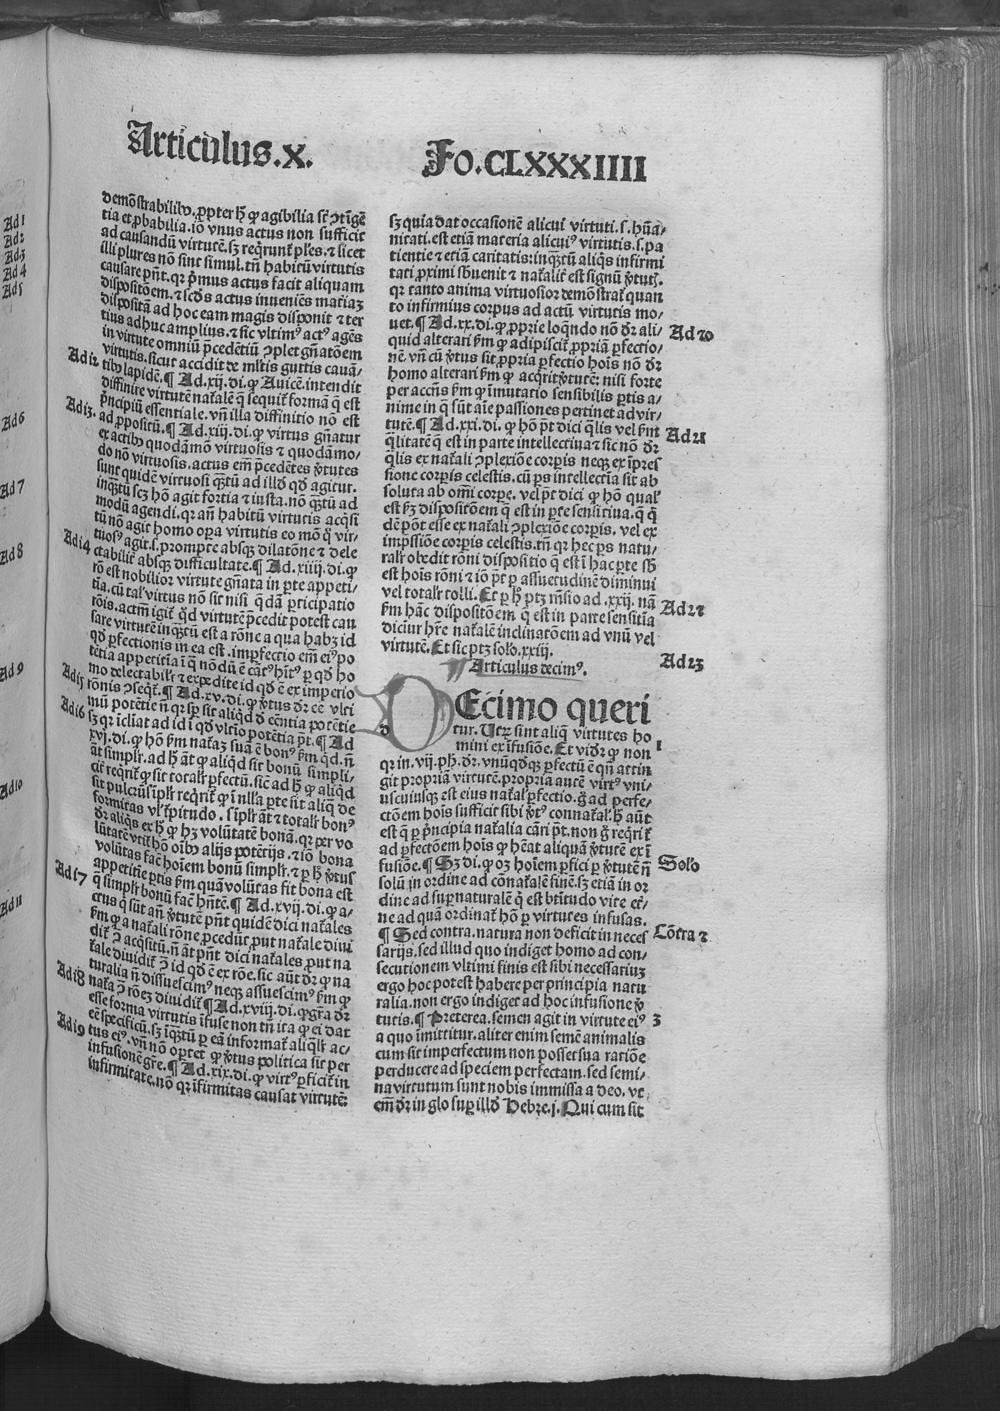 Articulus.X.
Fo.CLXXXIIII
demõstrabilibꝰ. ꝓpter hͦ ꝙ agibilia sũt ↄtĩgẽ
tia et ꝓbabilia. iõ vnus actus non sufficit
ad causandũ virtutẽ. sꝫ reqͥrunt̃ p̃les. ⁊ licet
illi plures nõ sint simul. tñ habitũ virtutis
causare pñt. qꝛ pͥmus actus facit aliquam
dispositõem. ⁊ scđs actus inueniẽs materiaꝫ
dispositã ad hoc eam magis disponit ⁊ ter
tius adhuc amplius. ⁊ sic vltimꝰ actꝰ agẽs
in virtute omniũ p̃cedẽtiũ ↄplet gñatõem
virtutis. sicut accidit de mltis guttis cauã/
tibꝰ lapidẽ. ¶ Ad.xij.di. ꝙ Auicẽ. intendit
diffinire virtutẽ nat̃alẽ q̃ sequit̃ formã q̃ est
pͥncipiũ essentiale. vñ illa diffinitio nõ est
ad ꝓpositũ. ¶ Ad.xiij.di. ꝙ virtus gñatur
ex actibꝰ quodãmõ virtuosis ⁊ quodãmo/
do nõ virtuosis. actus em̃ p̃cedẽtes v̾tutes
sunt quidẽ virtuosi qꝫtũ ad illđ qđ agitur.
inqꝫtũ scꝫ hõ agit fortia ⁊ iusta. nõ qꝫtũ ad
modũ agendi. qꝛ añ habitũ virtutis acqͥsi
tũ nõ agit homo oꝑa virtutis eo mõ q̊ vir/
tuosꝰ agit. s. prompte absqꝫ dilatõne ⁊ dele
ctabilit̃ absqꝫ difficultate. ¶ Ad.xiiij.di. ꝙ
rõ est nobilior virtute gñata in ꝑte appeti/
tia. cũ tal̃ virtus nõ sit nisi q̃dã ꝑticipatio
rõis. actꝰ igit̃ q̃ virtutẽ p̃cedit potest cau
sare virtutẽ inqꝫtũ est a rõne a qua habꝫ id
qđ ꝑfectionis in ea est. imꝑfectio em̃ eiꝰ po
tẽtia appetitĩa ĩ q̃ nõdũ ẽ
mo delectabilit̃ ⁊ expedite id qđ ẽ ex imperio
rõnis ↄseqͥt̃. ¶ Ad.xv.di. ꝙ v̾tus đr eẽ vlti
mũ potẽtie
¶ Ad
xvj.di. ꝙ hõ
ãt simpl̃r. ad hͦ ãt ꝙ aliqđ sit bonũ simpli/
cit̃ reqͥrit̃ ꝙ sit total̃r ꝑfectũ. sic̃ ad hͦ ꝙ aliqđ
sit pulcrũ simpl̃r reqͥrit̃ ꝙ ĩ nl̃la ꝑte sit aliq̃ de
formitas vl̃ t̾pitudo. simpl̃r ãt ⁊ total̃r bonꝰ
đr aliqͥs ex hͦ ꝙ hꝫ volũtatẽ bonã. qꝛ per vo
lũtatẽ vtit̃ hõ oĩbꝰ alijs potẽtijs. ⁊ iõ bona
volũtas fac̃ hoĩem bonũ simpl̃r. ⁊ ꝑ hͦ v̾tus
appetitĩe ꝑtis ẜm quã volũtas fit bona est
q̃ simpl̃r bonũ fac̃ hñtẽ. ¶ Ad.xvij.di. ꝙ a/
ctus q̃ sũt añ v̾tutẽ pñt quidẽ dici nat̃ales
ẜm ꝙ a nat̃ali rõne ꝓcedũt. ꝓut nat̃ale diui
dit̃ ↄ̃ acqͥsitũ. ñ ãt pñt dici nat̃ales ꝓut na
t̃ale diuidit̃ ↄ̃ id qđ ẽ ex rõe. sic aũt đr ꝙ na
turalia ñ dissuescimꝰ neqꝫ assuescimꝰ ẜm ꝙ
nat̃a ↄ̃ rõeꝫ diuidit̃. ¶ Ad.xviij.di. ꝙ gr̃a đr
esse forma virtutis ĩfuse non tñ ita ꝙ ei dat
eẽ specificũ. sꝫ ĩqꝫtũ ꝑ eã informat̃ aliqͣlit̃ ac/
tus eiꝰ. vñ nõ oportet ꝙ v̾tus politica sit per
infusionẽ gr̃e. ¶ Ad.xix.di. ꝙ virtꝰ ꝑficit̃ in
infirmitate. nõ qꝛ ĩfirmitas causat virtutẽ:
sꝫ quia dat occasionẽ alicui virtuti. s. hũa/
nitati. est etiã materia alicuiꝰ virtutis. s. pa
tientie ⁊ etiã caritatis: inqꝫtũ aliqͥs infirmi
tati ꝓximi sb̾uenit ⁊ nat̃alit̃ est signũ v̾tutꝭ.
qꝛ tanto anima virtuosior demõstrat̃ quan
to infirmius corpus ad actũ virtutis mo/
uet. ¶ Ad.xx.di. ꝙ ꝓprie loqñdo nõ đr ali/
quid alterari ẜm ꝙ adipiscit̃ ꝓpriã ꝑfectio/
nẽ. vñ cũ v̾tus sit ꝓpria ꝑfectio hoĩs nõ đr
homo alterari ẜm ꝙ acqͥrit v̾tutẽ: nisi forte
per accñs ẜm ꝙ ĩmutatio sensibilis ꝑtis a/
nime in q̃ sũt aĩe passiones pertinet ad vir/
tutẽ. ¶ Ad.xxi.di. ꝙ hõ p̃t dici qͣlis vel ẜm
qͣlitatẽ q̃ est in parte intellectiua ⁊ sic nõ đr
qͣlis ex nat̃ali ↄplexiõe corꝑis neqꝫ ex ĩpres
sione corꝑis celestis. cũ ꝑs intellectĩa sit ab
soluta ab om̃i corꝑe. vel p̃t dici ꝙ hõ qual̃
est ẜꝫ dispositõem q̃ est in ꝑte sensitiua. q̃ q̃
dẽ põt esse ex nat̃ali ↄplexiõe corꝑis. vel ex
imp̃ssiõe corꝑis celestis. tñ qꝛ hec ꝑs natu/
ral̃r obedit rõni dispositio q̃ est ĩ hac ꝑte sb̾
est hoĩs rõni ⁊ iõ p̃t ꝑ assuetudinẽ diminui
vel total̃r tolli. Et ꝑ hͦ ptꝫ rñsio ad.xxij. nã
ẜm hãc dispositõem q̃ est in parte sensitĩa
dicũtur hr̃e nat̃alẽ inclinatõem ad vnũ vel
virtutẽ. Et sic ptꝫ solo.xxiij.
Articulus decimꝰ.
DEcimo queri
tur. Utꝝ sint aliq̃ virtutes ho
mini ex ĩfusiõe. Et vidr̃ ꝙ non
qꝛ in.vij.ph.đr. vnũqđqꝫ ꝑfectũ ẽ qñ attin
git propriã virtutẽ. propria autẽ virtꝰ vni/
uscuiusqꝫ est eius nat̃al̃ ꝑfectio. g̊ ad perfe/
ctõem hoĩs sufficit sibi v̾tꝰ connat̃al̃. hͦ aũt
est q̃ ꝑ pͥncipia nat̃alia cãri p̃t. non g̊ reqͥrit̃
ad ꝑfectõem hoĩs ꝙ hẽat aliquã v̾tutẽ ex ĩ
fusiõe. ¶ Sꝫ di. ꝙ oꝫ hoĩem ꝑfici ꝑ v̾tutẽ ñ
solũ in ordine ad cõnat̃alẽ finẽ. sꝫ etiã in or
dine ad suꝑnaturalẽ q̃ est btĩtudo vite et̃/
ne ad quã ordinat̃ hõ ꝑ virtutes infusas.
¶ Sed contra. natura non deficit in neces
sarijs. sed illud quo indiget homo ad con/
secutionem vltimi finis est sibi necessariuꝫ
ergo hoc potest habere per principia natu
ralia. non ergo indiget ad hoc infusione v̾
tutis. ¶ Preterea. semen agit in virtute eiꝰ
a quo ĩmittitur. aliter enim semẽ animalis
cum sit imperfectum non posset sua ratiõe
perducere ad speciem perfectam. sed semi/
na virtutum sunt nobis immissa a deo. vt
em̃ đr in glo suꝑ illđ Hebre.j. Qui cum sit
Ad 12
Ad 13
Ad 14
Ad 15
Ad 16
Ad 17
Ad 18
Ad 19
Ad 20
Ad 21
Ad 22
Ad 23
1
Solo
Cõtra 2
3
Ad 1
Ad 2
Ad 3
Ad 4
Ad 5
Ad 6
Ad 7
Ad 8
Ad 9
Ad 10
Ad 11